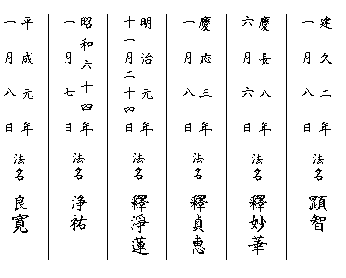 建久二年
一月八日
法名 顕智
慶長八年
六月六日
法名 釋妙華
慶応三年
一月八日
法名 釋貞恵
明治元年
十一月二十四日
法名 釋淨蓮
昭和六十四年
一月七日
法名 浄祐
平成元年
一月八日
法名 良寛